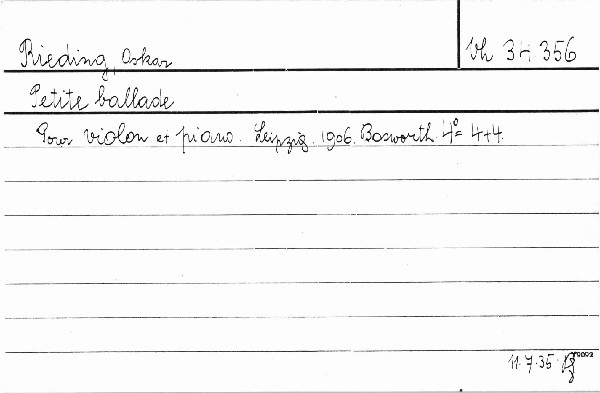 Rieding, Oskar
Vh 34 356
Petite ballade
Pour violon et piano. Leipzig. 1906. Bosworth. 4° = 4+4.
11.7.35